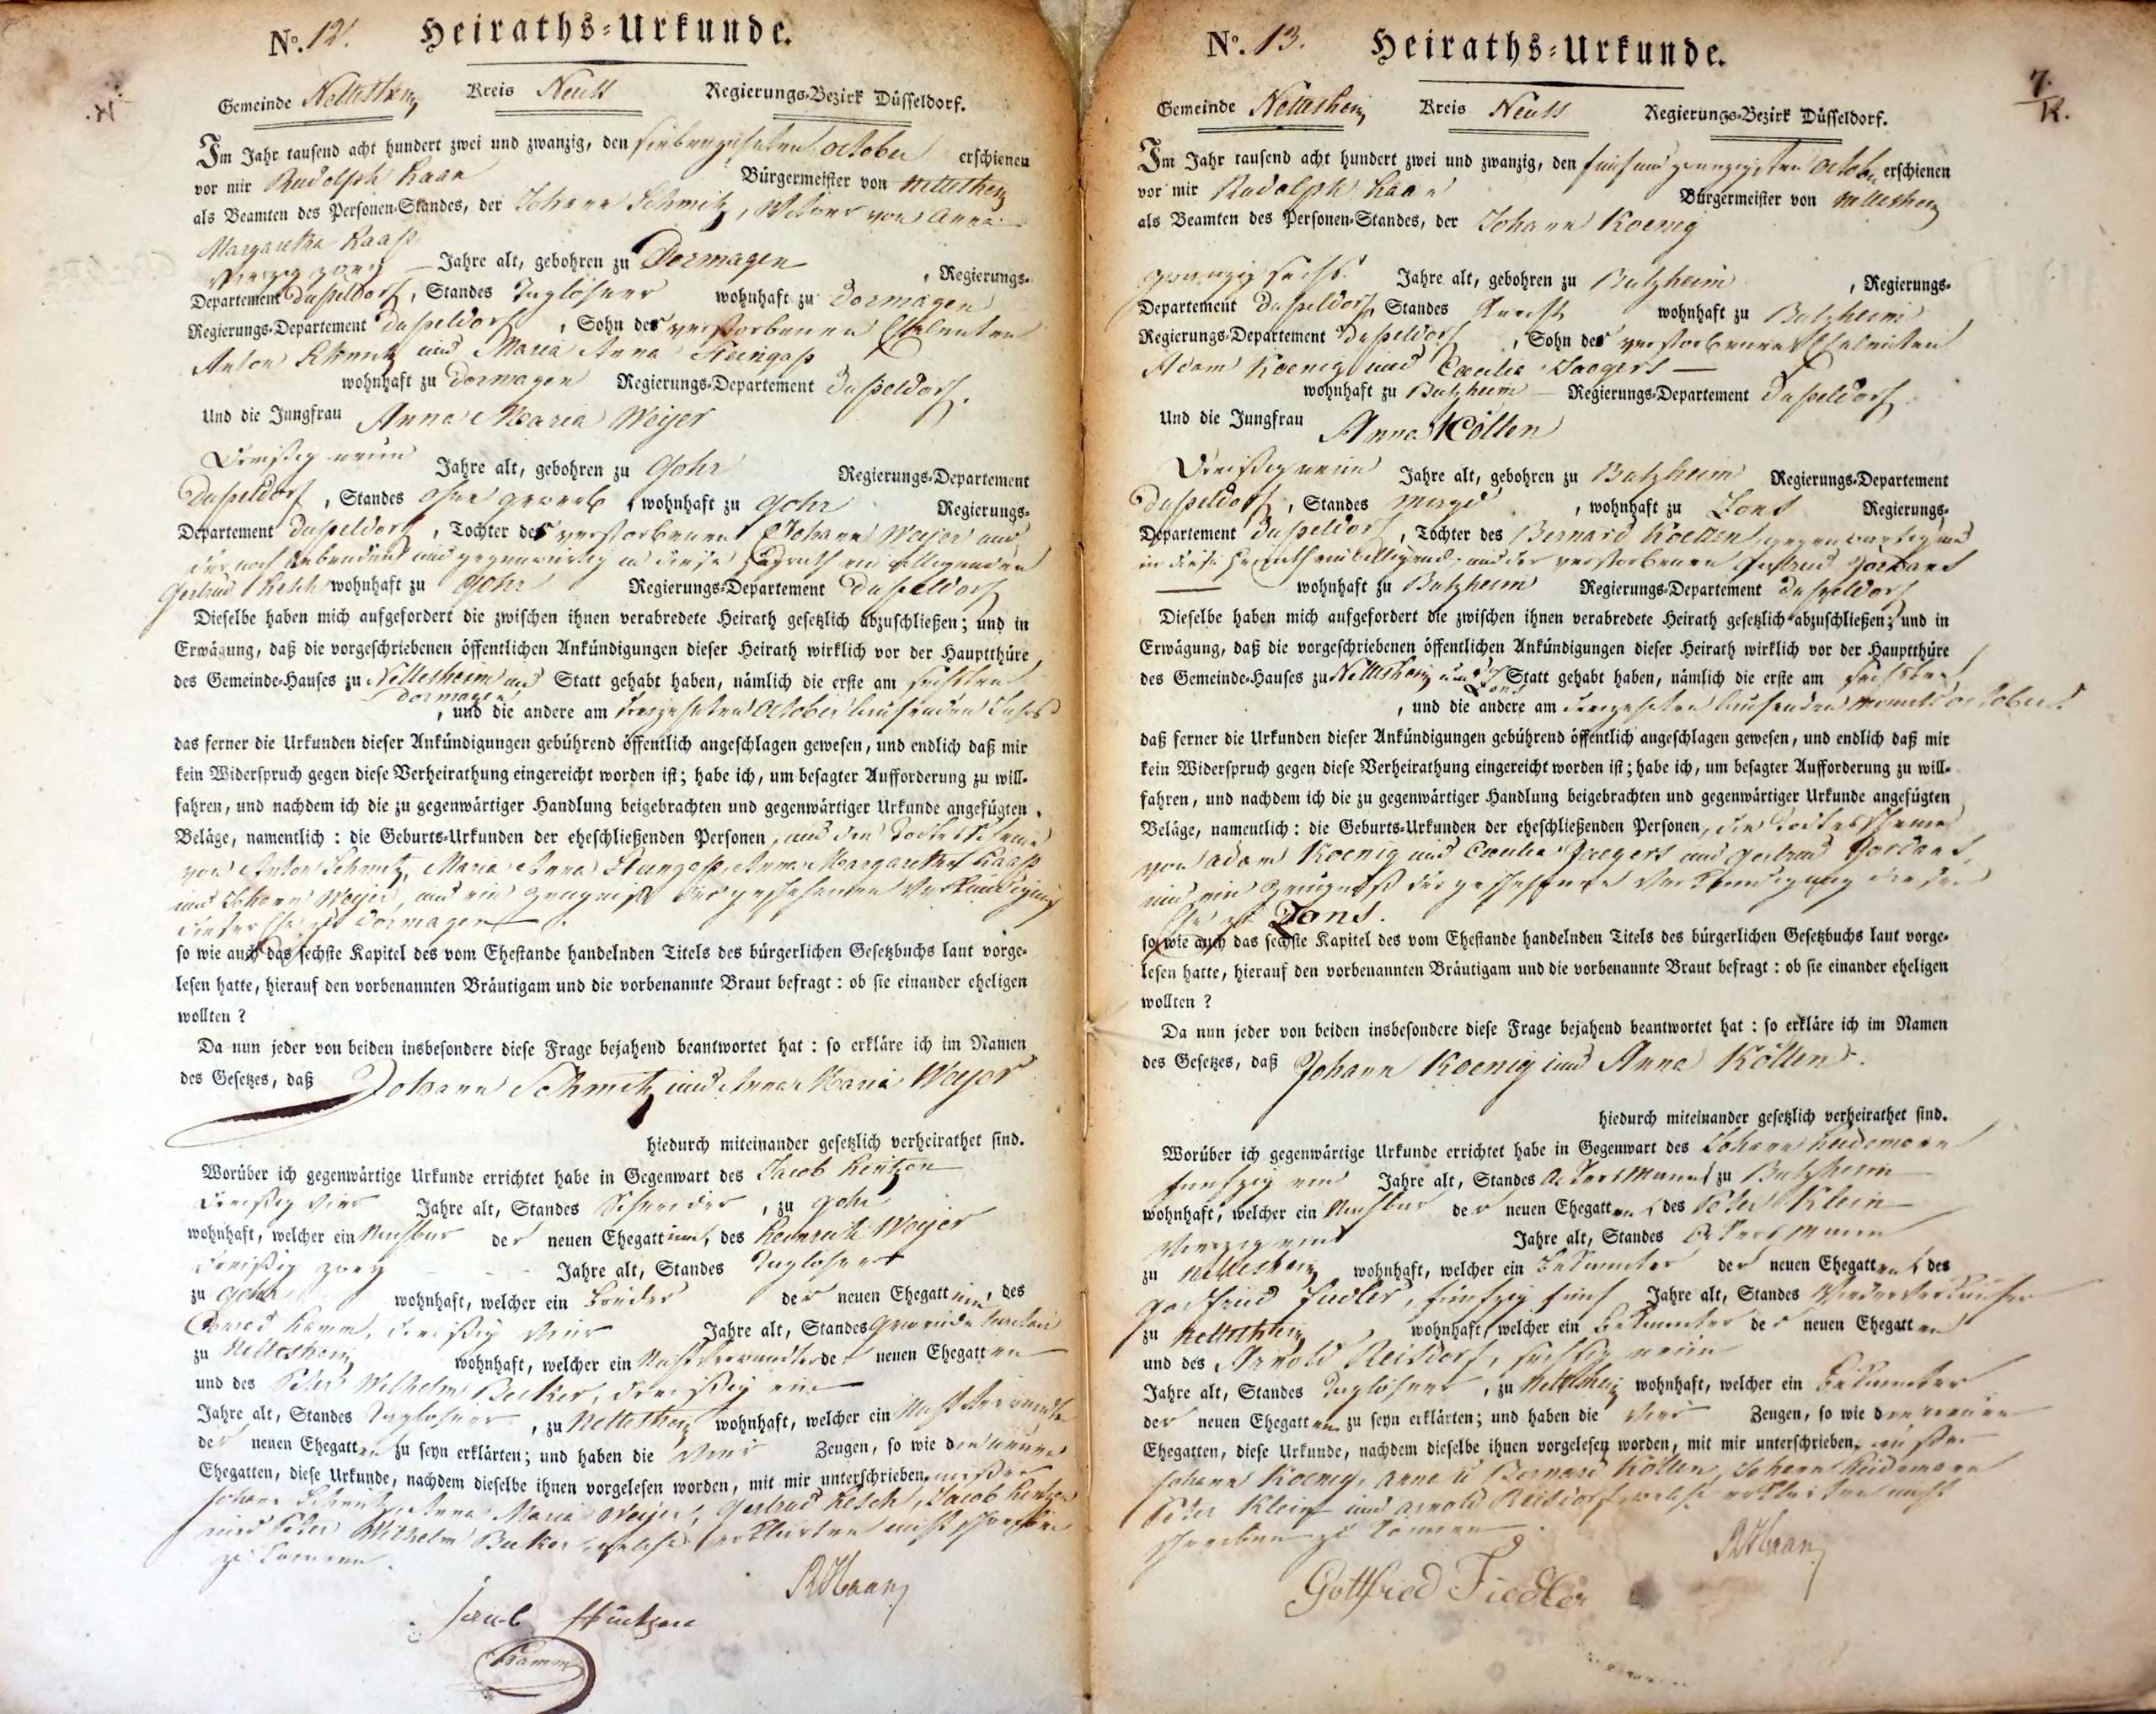 No. 12. Heiraths-Urkunde.
Gemeinde Nettesheim Kreis Neuss Regierungs-Bezirk Düsseldorf.
Im Jahr tausend acht hundert zwei und zwanzig, den siebenzehnten october erschienen
vor mir Rudolph Haan Bürgermeister von Nettesheim
als Beamten des Personen-Standes, der Johann Schmitz, Witwer von Anna
Margaretha Haass
vierzig zwey Jahre alt, gebohren zu Dormagen, Regierungs-
Departement Düsseldorf, Standes Taglöhner wohnhaft zu Dormagen
Regierungs-Departement Düsseldorf, Sohn der verstorbenen Eheleuten
Anton Schmitz und Maria Anna
wohnhaft zu Dormagen Regierungs-Departement Düsseldorf.
Und die Jungfrau Anna Maria Weyer
Dreißig neun Jahre alt, gebohren zu Gohr Regierungs-Departement
Düsseldorf, Standes ohne gewerb, wohnhaft zu Gohr Regierungs-
Departement Düsseldorf, Tochter des verstorbenen Johann Weyer und
der noch lebenden und gegenwärtig in diese Heirath einwilligenden
Gertrud Resch wohnhaft zu Gohr Regierungs-Departement Düsseldorf
Dieselbe haben mich aufgefordert die zwischen ihnen verabredete Heirath gesetzlich abzuschließen; und in
Erwägung, daß die vorgeschriebenen öffentlichen Ankündigungen dieser Heirath wirklich vor der Hauptthüre
des Gemeinde-Hauses zu Nettesheim und Statt gehabt haben, nämlich die erste am sechsten
Dormagen, und die andere am dreizehnten October laufenden Jahrs
das ferner die Urkunden dieser Ankündigungen gebührend öffentlich angeschlagen gewesen, und endlich daß mir
kein Widerspruch gegen diese Verheirathung eingereicht worden ist; habe ich, um besagter Aufforderung zu will-
fahren, und nachdem ich die zu gegenwärtiger Handlung beigebrachten und gegenwärtiger Urkunde angefügten
Beläge, namentlich: die Geburts-Urkunden der eheschließenden Personen, und die Todtesscheine
von Anton Schmitz, Maria Anna Anna Margaretha Haass
und Johann Weyer, und ein Zeugniß der geschehenen Verkündigung
dieser Ehe zu Dormagen.
so wie auch das sechste Kapitel des vom Ehestande handelnden Titels des bürgerlichen Gesetzbuchs laut vorge-
lesen hatte, hierauf den vorbenannten Bräutigam und die vorbenannte Braut befragt: ob sie einander eheligen
wollten?
Da nun jeder von beiden insbesondere diese Frage bejahend beantwortet hat: so erkläre ich im Namen
des Gesetzes, daß Johann Schmitz und Anna Maria Weyer
hiedurch miteinander gesetzlich verheirathet sind.
Worüber ich gegenwärtige Urkunde errichtet habe in Gegenwart des Jacob
Dreißig vier Jahre alt, Standes Schneider, zu Gohr
wohnhaft, welcher ein Nachbar der neuen Ehegattinn, des Heinrich Weyer
Dreißig zwey Jahre alt, Standes Taglöhner
zu Gohr wohnhaft, welcher ein Bruder der neuen Ehegattinn, des
Conrad Kamm, dreißig vier Jahre alt, Standes Gemeinde
zu Nettesheim wohnhaft, welcher ein Nicht Verwandter der neuen Ehegatten
und des Peter Wilhelm Becker, dreißig ein
Jahre alt, Standes Taglöhner, zu Nettesheim wohnhaft, welcher ein Nicht Verwandter
der neuen Ehegatten zu seyn erklärten; und haben die vier Zeugen, so wie die neuen
Ehegatten, diese Urkunde, nachdem dieselbe ihnen vorgelesen worden, mit mir unterschrieben, außer
Johann Schmitz, Anna Maria Weyer, Gertrud Resch,
und Peter Wilhelm Becker welche erklärten nicht schreiben
zu können.
RHaan
Jacob
Kamm
7.
No. 13. Heiraths-Urkunde.
Gemeinde Nettesheim Kreis Neuss Regierungs-Bezirk Düsseldorf.
Im Jahr tausend acht hundert zwei und zwanzig, den fünf und zwanzigsten October erschienen
vor mir Rudolph Haan Bürgermeister von Nettesheim
als Beamten des Personen-Standes, der Johann Koenig
zwanzig sechs Jahre alt, gebohren zu Butzheim, Regierungs-
Departement Düsseldorf, Standes Knecht wohnhaft zu Butzheim
Regierungs-Departement Düsseldorf, Sohn der verstorbenen Eheleuten
Adam Koenig und Caecilia Jaegers
wohnhaft zu Butzheim Regierungs-Departement Düsseldorf.
Und die Jungfrau Anna Kötten
Dreißig neun Jahre alt, gebohren zu Butzheim Regierungs-Departement
Düsseldorf, Standes Magd, wohnhaft zu Zons Regierungs-
Departement Düsseldorf, Tochter des Bernard Koetten gegenwärtig und
in diese Heirath einwilligend, und der verstorbenen Gertrud
wohnhaft zu Butzheim Regierungs-Departement Düsseldorf
Dieselbe haben mich aufgefordert die zwischen ihnen verabredete Heirath gesetzlich abzuschließen; und in
Erwägung, daß die vorgeschriebenen öffentlichen Ankündigungen dieser Heirath wirklich vor der Hauptthüre
des Gemeinde-Hauses zu Nettesheim und Statt gehabt haben, nämlich die erste am sechsten
Zons, und die andere am dreizehnten laufenden monats october
daß ferner die Urkunden dieser Ankündigungen gebührend öffentlich angeschlagen gewesen, und endlich daß mir
kein Widerspruch gegen diese Verheirathung eingereicht worden ist; habe ich, um besagter Aufforderung zu will-
fahren, und nachdem ich die zu gegenwärtiger Handlung beigebrachten und gegenwärtiger Urkunde angefügten
Beläge, namentlich: die Geburts-Urkunden der eheschließenden Personen, die Todtesscheine
von Adam Koenig und Caecilia Jaegers und Gertrud
und ein Zeugniß der geschehenen Verkündigung dieser
Ehe zu Zons.
so wie auch das sechste Kapitel des vom Ehestande handelnden Titels des bürgerlichen Gesetzbuchs laut vorge-
lesen hatte, hierauf den vorbenannten Bräutigam und die vorbenannte Braut befragt: ob sie einander eheligen
wollten?
Da nun jeder von beiden insbesondere diese Frage bejahend beantwortet hat: so erkläre ich im Namen
des Gesetzes, daß Johann Koenig und Anna Kötten.
hiedurch miteinander gesetzlich verheirathet sind.
Worüber ich gegenwärtige Urkunde errichtet habe in Gegenwart des Johann Heidemann
fünfzig ein Jahre alt, Standes Ackersmann zu Butzheim
wohnhaft, welcher ein Nachbar der neuen Ehegatten, des Peter Klein
Vierzig ein Jahre alt, Standes Ackersmann
zu Nettesheim wohnhaft, welcher ein Bekannter der neuen Ehegatten, des
Godfried Fiedler, fünfzig fünf Jahre alt, Standes
zu Nettesheim wohnhaft, welcher ein Bekannter der neuen Ehegatten
und des Arnold Reisdorf, sechszig neun
Jahre alt, Standes Taglöhner, zu Nettesheim wohnhaft, welcher ein Bekannter
der neuen Ehegatten zu seyn erklärten; und haben die vier Zeugen, so wie die neuen
Ehegatten, diese Urkunde, nachdem dieselbe ihnen vorgelesen worden, mit mir unterschrieben, außer
Johann Koenig, Anna u Bernard Kötten, Johann Heidemann
Peter Klein und Arnold Reisdorf, welche erklärten nicht
schreiben zu können.
RHaan
Gottfried Fiedler